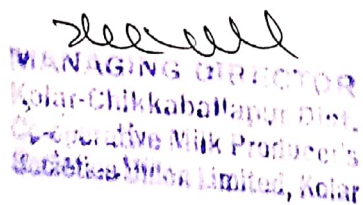 MANAGING DIRECTOR
Kolar-Chikkaballapur Dist.
Co-operative Milk Producer's
Societies Union Limited, Kolar